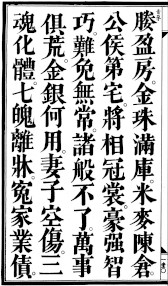 媵盈房。金珠滿庫米麥陳倉。
公侯第宅將相冠裳。豪强智
巧。難免無常。諸般不了。萬事
俱荒。金銀何用。妻子空傷。三
魂化體。七魄離牀。冤家業債。